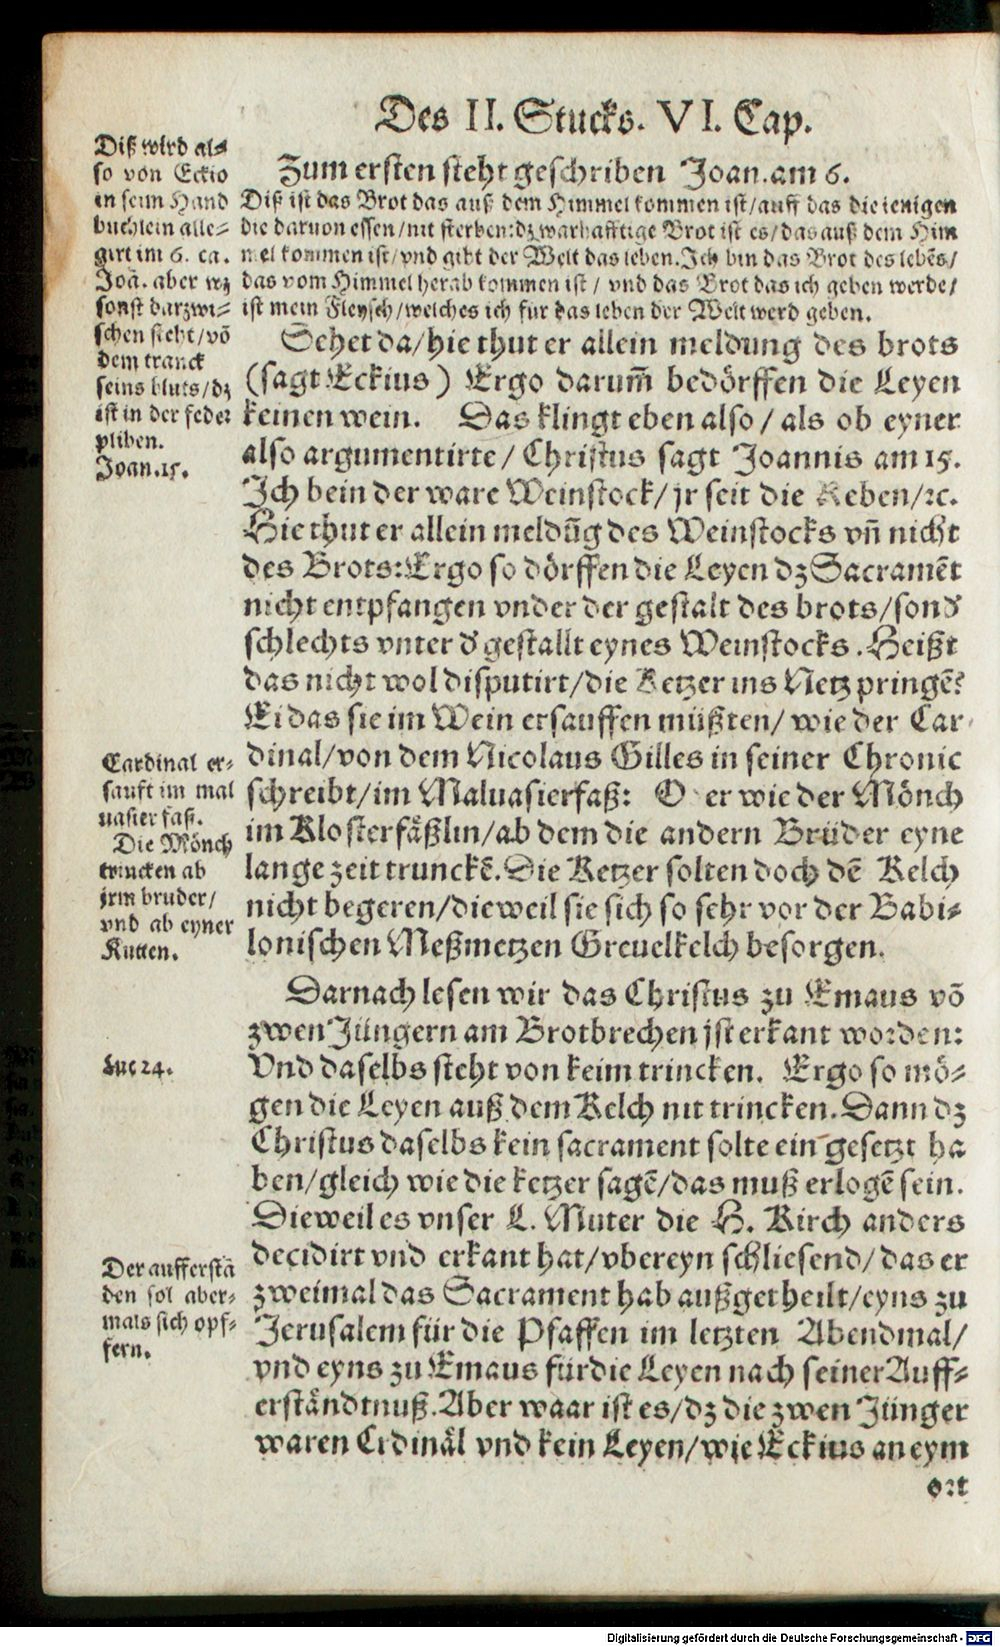 Des II. Stucks. VI. Cap.
Zum ersten steht geschriben Joan. am 6.
Diß ist das Brot das auß dem Himmel kommen ist/auff das die ienigen
die daruon essen/nit sterben:dz warhafftige Brot ist es/das auß dem Him
mel kommen ist/vnd gibt der Welt das leben.Ich bin das Brot des lebẽs/
das vom Himmel herab kommen ist/ vnd das Brot das ich geben werde/
ist mein Fleysch/welches ich für das leben der Welt werd geben.
Sehet da/hie thut er allein meldung des brots
(sagt Eckius) Ergo darum̃ bedörffen die Leyen
keinen wein. Das klingt eben also/ als ob eyner
also argumentirte/ Christus sagt Joannis am 15.
Ich bein der ware Weinstock/jr seit die Reben/ꝛc.
Hie thut er allein meldũg des Weinstocks vñ nicht
des Brots:Ergo so dörffen die Leyen dz Sacramẽt
nicht entpfangen vnder der gestalt des brots/sond'
schlechts vnter d' gestallt eynes Weinstocks. Heißt
das nicht wol disputirt/die Ketzer ins Netz pringẽ?
Ei das sie im Wein ersauffen müßten/ wie der Car
dinal/von dem Nicolaus Gilles in seiner Chronic
schreibt/im Maluasierfaß: O er wie der Mönch
im Klosterfäßlin/ab dem die andern Brüder eyne
lange zeit trunckẽ.Die Ketzer solten doch dẽ Kelch
nicht begeren/dieweil sie sich so sehr vor der Babi-
lonischen Meßmetzen Greuelkelch besorgen.
Darnach lesen wir das Christus zu Emaus võ
zwen Jüngern am Brotbrechen jst erkant worden:
Vnd daselbs steht von keim trincken. Ergo so mö-
gen die Leyen auß dem Kelch nit trincken.Dann dz
Christus daselbs kein sacrament solte ein gesetzt ha
ben/gleich wie die ketzer sagẽ/das muß erlogẽ sein.
Dieweil es vnser L. Muter die H. Kirch anders
decidirt vnd erkant hat/vbereyn schliesend/das er
zweimal das Sacrament hab außgetheilt/eyns zu
Jerusalem für die Pfaffen im letzten Abendmal/
vnd eyns zu Emaus für die Leyen nach seiner Auff-
erständtnuß.Aber waar ist es/dz die zwen Jünger
waren Crdinäl vnd kein Leyen/wie Eckius an eym
ort
Diß wird al-
so von Eckio
in seim Hand
buchlein alle-
girt im 6. ca.
Joã. aber wz
sonst darzwi-
schen steht/võ
dem tranck
seins bluts/dz
ist in der feder
pliben.
Joan.15.
Cardinal er-
sauft im mal
uasier faß.
Die Mönch
trincken ab
jrm bruder/
vnd ab eyner
Kutten.
Luc 24.
Der aufferstã
den sol aber-
mals sich opf-
fern.
Digitalisierung gefördert durch die Deutsche Forschungsgemeinschaft - DFG